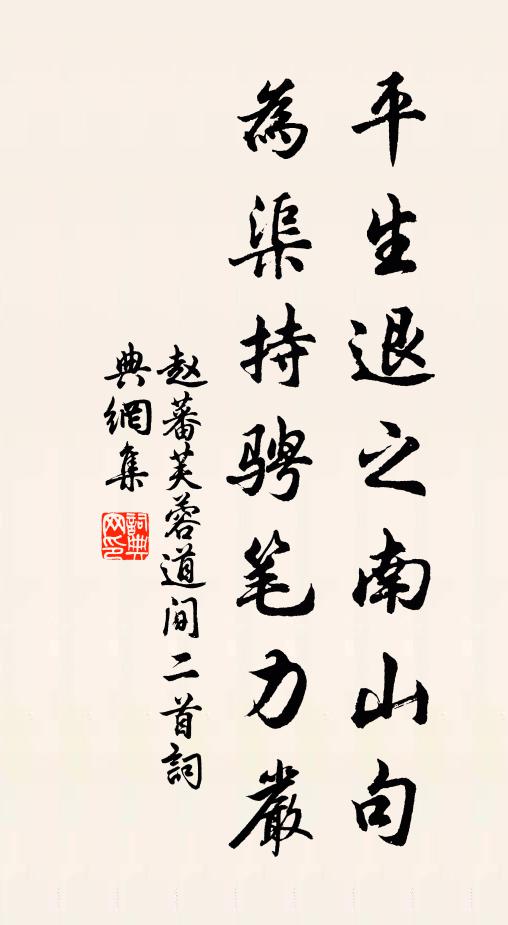 平生退之南山句
為渠持骋笔力嚴
赵蕃芙蓉道间二首詞
典網集
詞典网印